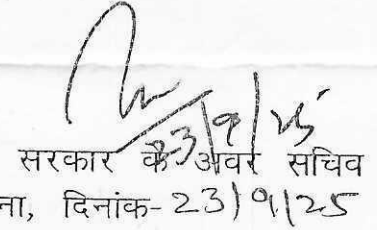 23/9/25
सरकार के अवर सचिव
ना, दिनांक- 23/9/25